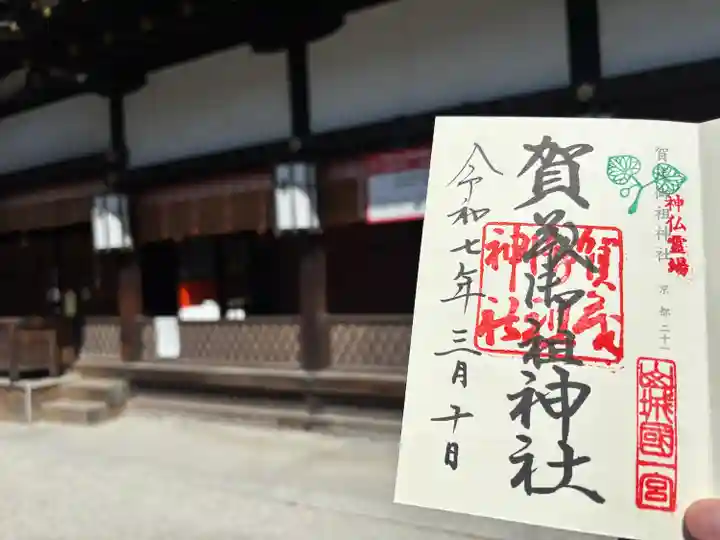 賀茂御祖神社
京都二十一
神仏霊場
山城國一宮
賀茂御祖神社
賀茂御祖神社
令和七年三月十日